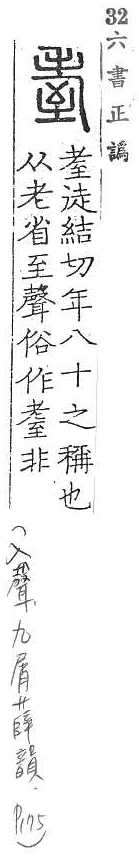 32
六書正譌
耊徒結切年八十之稱也
从老省至聲俗作耋非
(入聲.九屑薛韻.P.175)